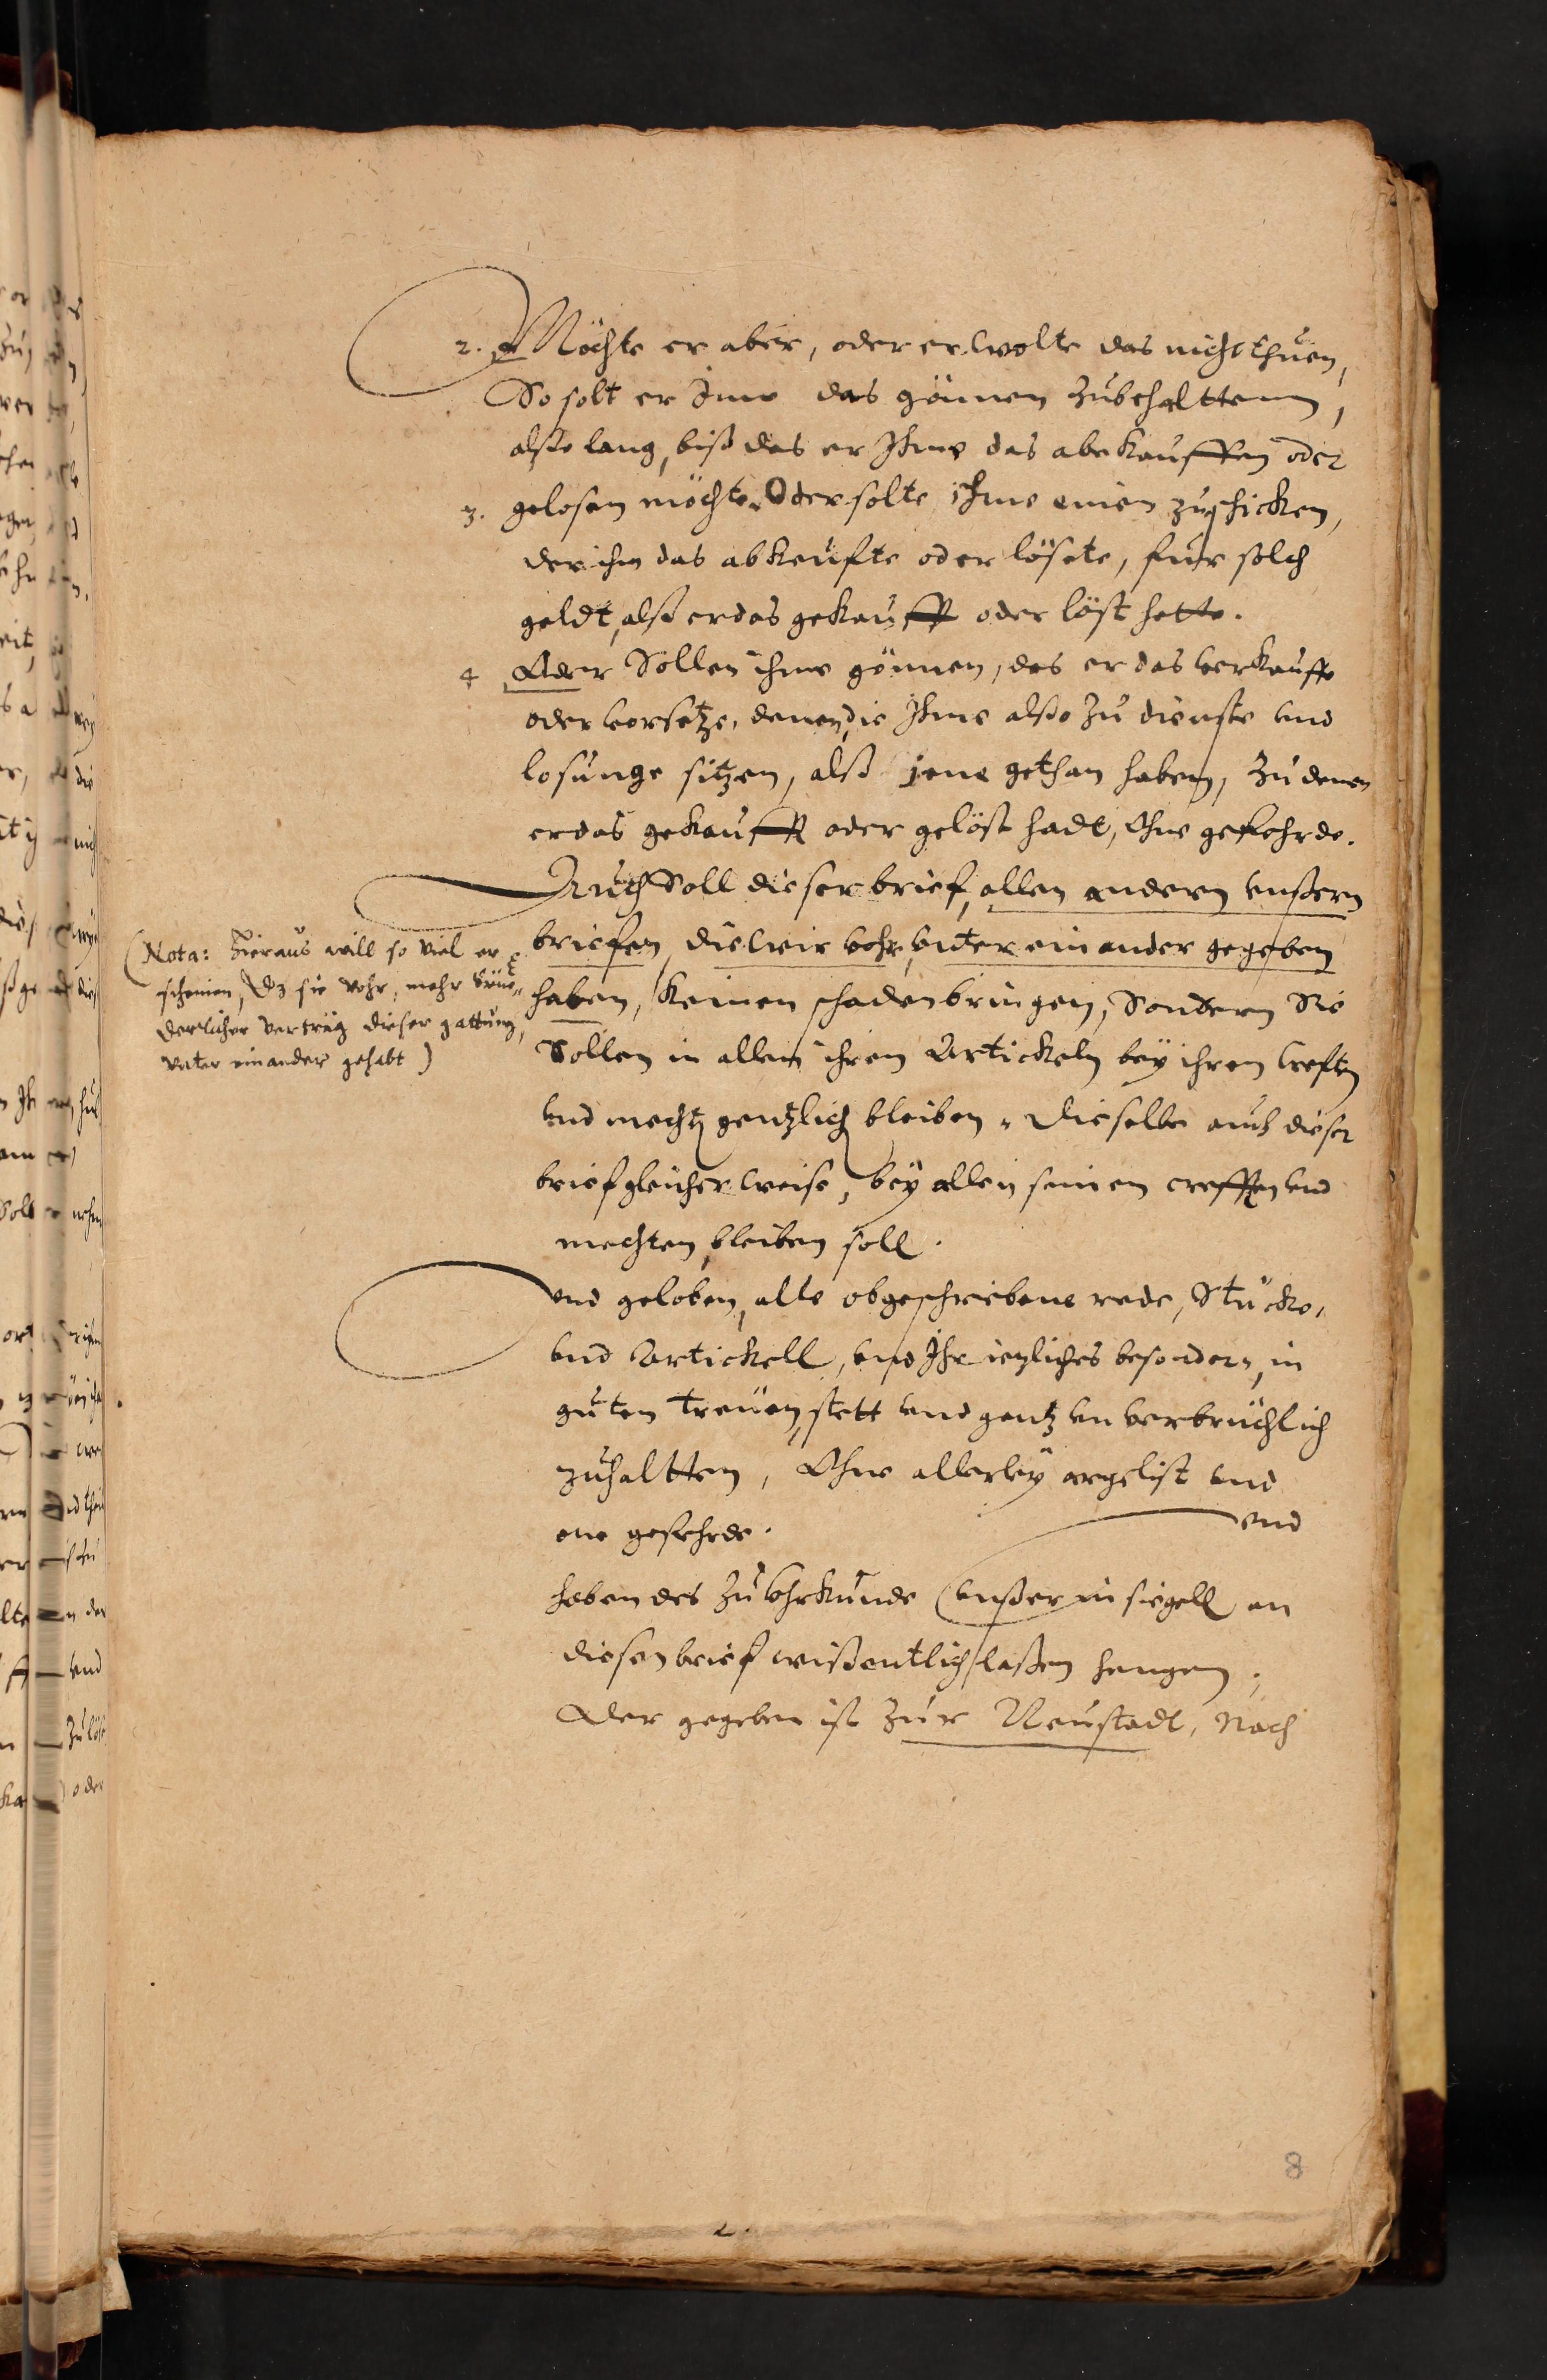 2. Möchte er aber, oder er wolte das nicht thuen,
So solt er Ime das gönnen zubehalttenn,
alßo lang, biß das er Ihme das abe kauffen oder
3. gelosen möchte. Oder solte ihme einen zuschicken,
der ihm das abkeufte oder lösete, fur solch
geldt, alß er das gekaufft oder löst hette.
4 Oder Sollen ihme gönnen, das er das verkauffe
oder vorsetze, denen, die Ihme also zu dienste vnd
losunge sitzen, alß jene gethan haben, zu denen
er das gekaufft oder gelöst hadt, Ohne gefehrde.
Auch Soll dieser brief, allen andern vnßern
briefen, die wir vohr, vnter einander gegeben
haben, keinen schaden bringen, Sondern Sie
Sollen in allen ihren Artickeln bey ihren creften
vnd mechtn gentzlich bleiben. Dieselbe auch dieser
brief gleicher weise, bey allen seinen crefften vnd
mechten, bleiben soll.
(Nota: Hieraus will so viel er-
scheinen, dz sie vohr, mehr brüe-
derlicher verträg dieser gattung,
vnter einander gehabt)
Vnd geloben, alle obgeschriebene rede, Stücke,
vnd Artickell, vnd Ihr iezliches besondern, in
guten treuen, stett vnd gentz vnverbrüchlich
zuhaltten, Ohne allerley argelist vnd
one gefehrde. Vnd
haben des zu Vhrkunde vnßer insiegell an
diesen brief wißentlich laßen hengen.
Der gegeben ist zur Neustadt, Nach
8